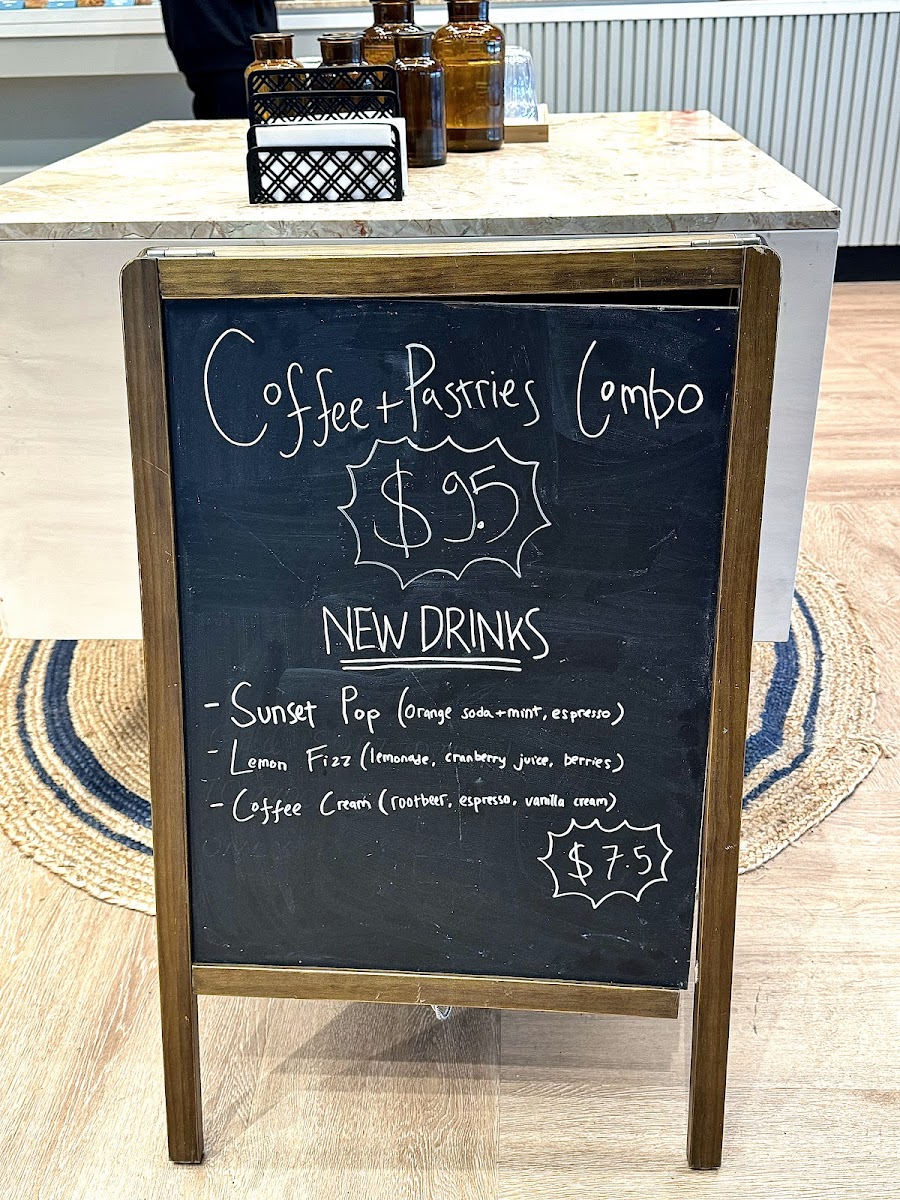 Coffee + Pastries Combo
$9.5
NEW DRINKS
- Sunset Pop (orange soda + mint, espresso)
- Lemon Fizz (lemonade, cranberry juice, berries)
- Coffee Cream (rootbeer, espresso, vanilla cream)
$7.5